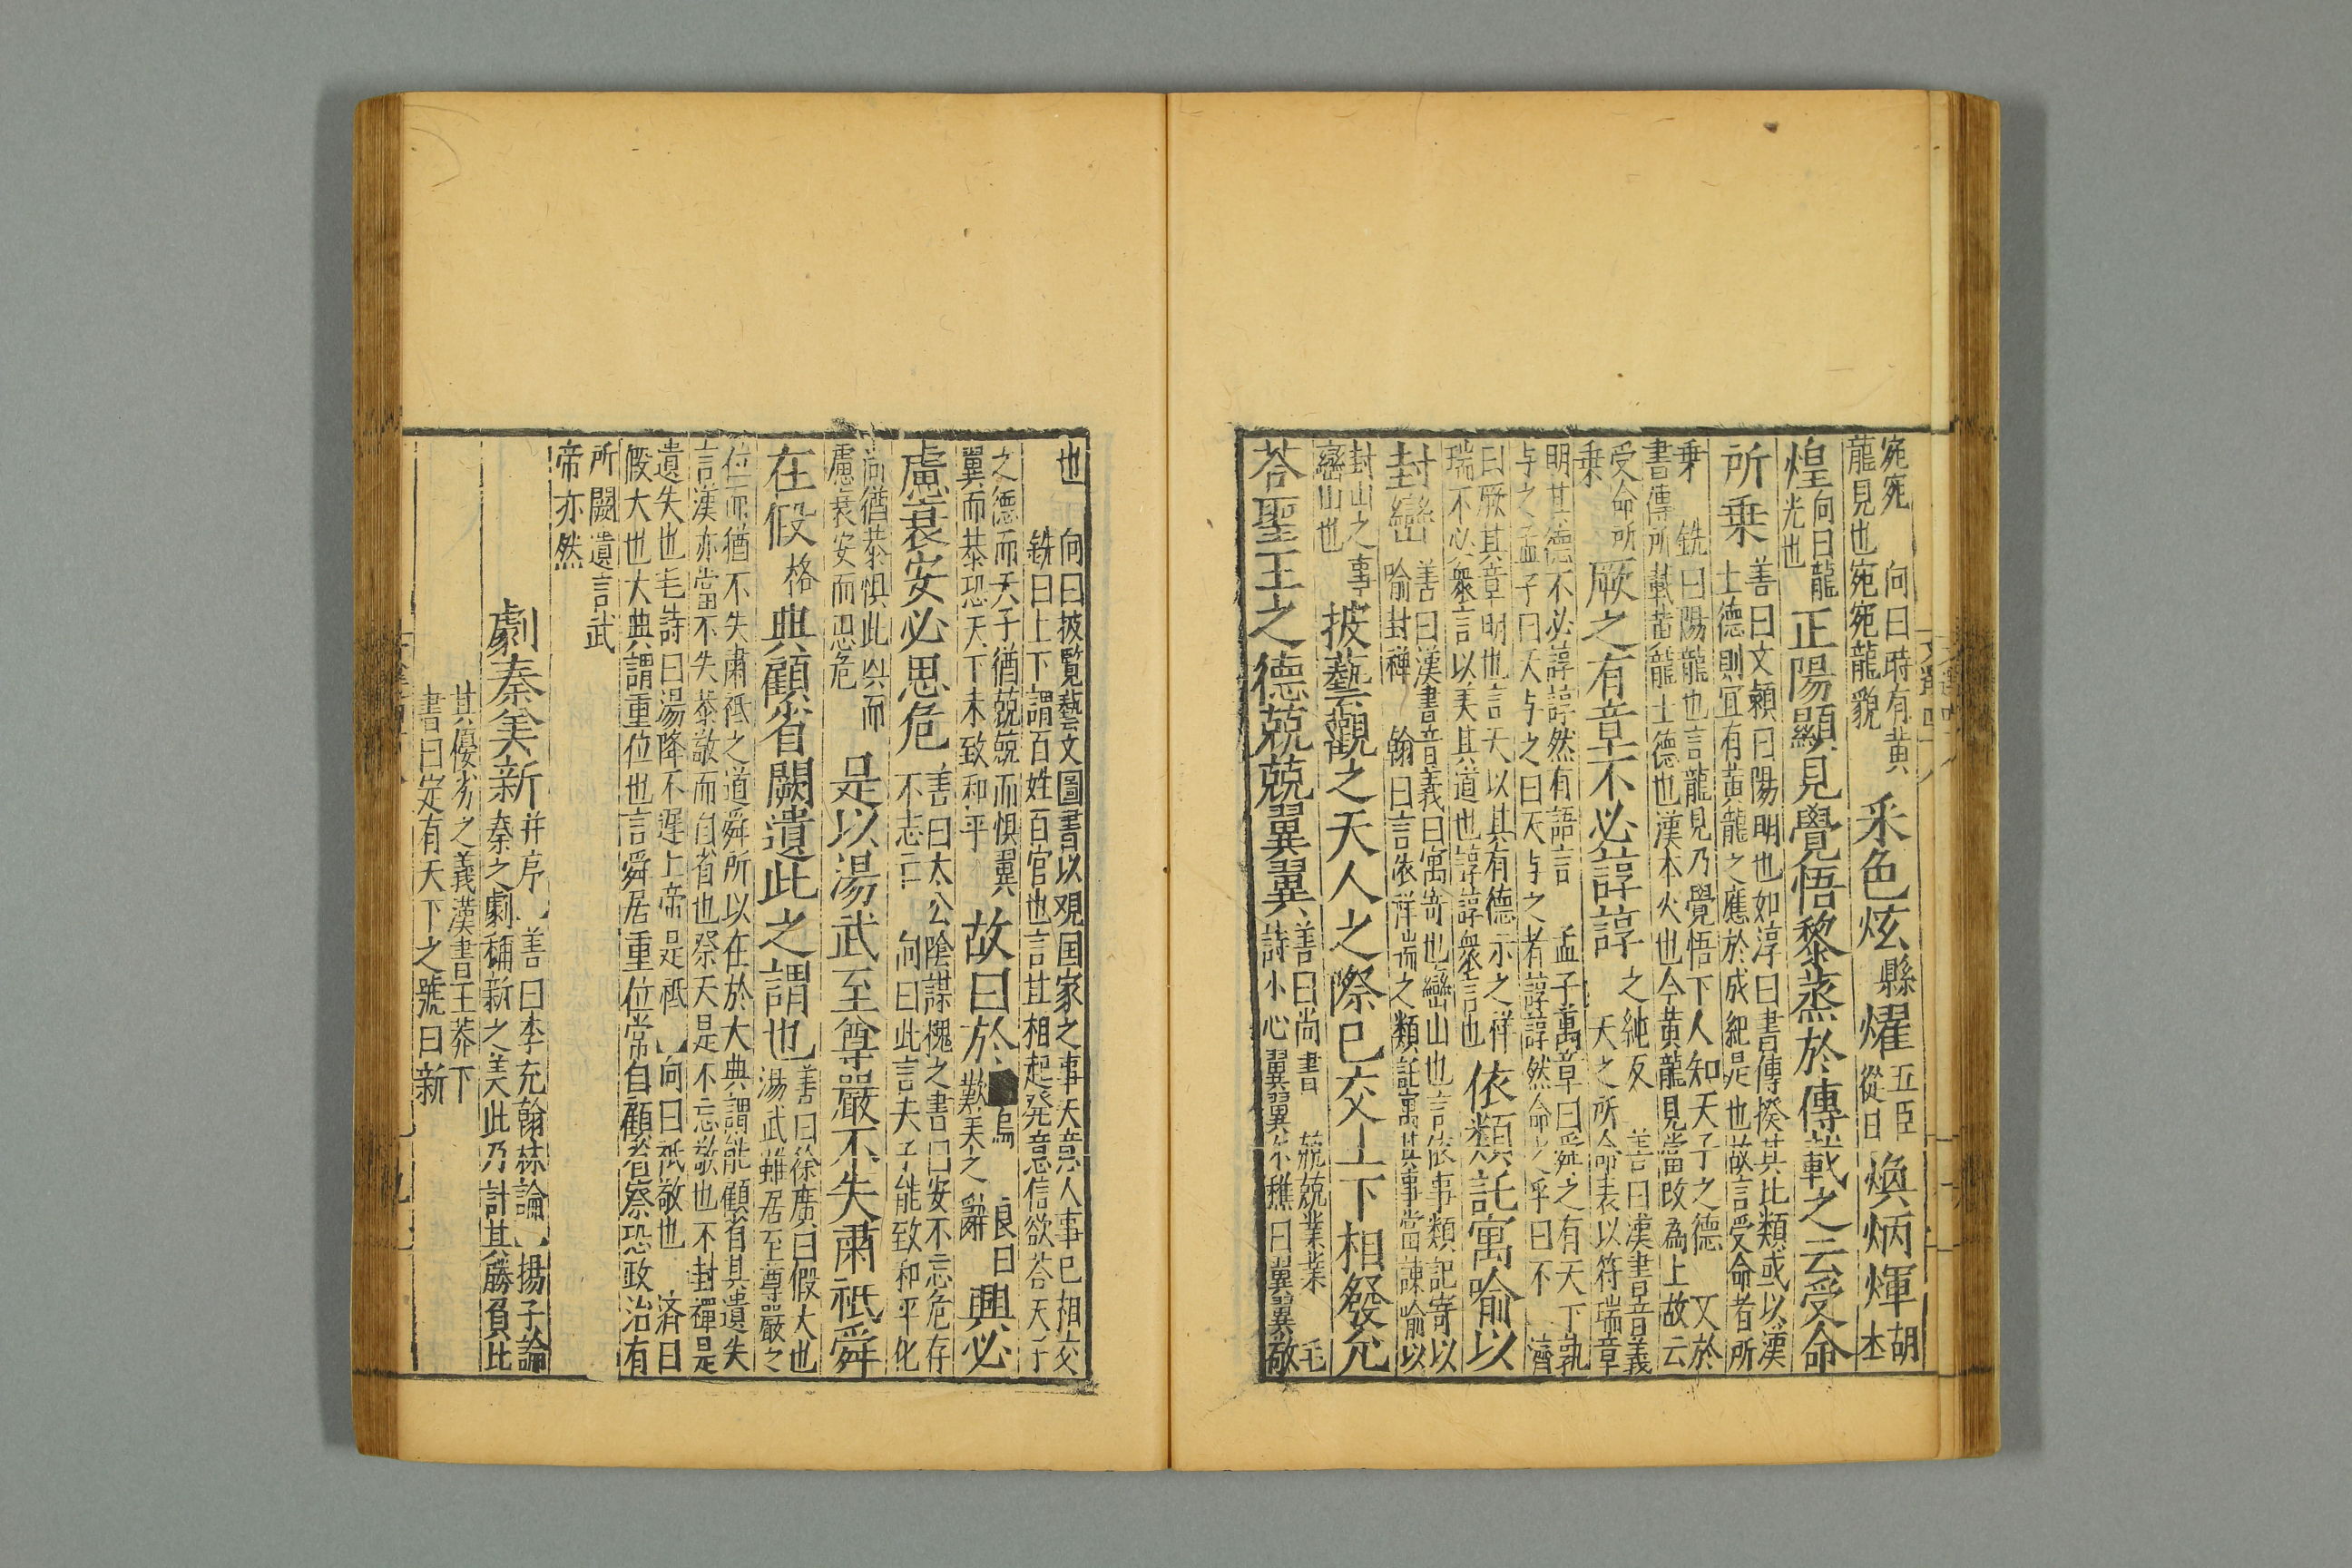 宛宛　向曰時有黃
龍見也宛宛龍貌
采色炫
縣
燿
五臣
從日
煥炳煇
胡
本
煌
向曰龍
光也
正陽顯見覺悟黎蒸於傳載之云受命
所乗
善曰文頴曰陽明也如淳曰書傳揆其比類或以漢
土德則宜有黃龍之應於成紀是也故言受命者所
乗　銑曰陽龍也言龍見乃覺悟下人知天子之德　又於
書傳所載昔龍土德也漢本火也今黃龍見當改為上故云
受命所
乗
厥之有章不必諄諄
之純反　善曰漢書音義
天之所命表以符瑞章
明其德不必諄諄然有語言　孟子萬章曰舜之有天下孰
与之孟子曰天与之曰天与之者諄諄然命之乎曰不　濟
曰厥其章明也言天以其有德示之祥
瑞不必衆言以美其道也諄諄衆言也
依類託寓喻以
封巒
善曰漢書音義曰寓寄也巒山也言依事類記寄以
喻封禪　翰曰言依祥瑞之類託寓其事當諫喻以
封山之事
巒山也
披藝觀之天人之際已交上下相發允
荅聖王之德兢兢翼翼
善曰尚書　兢兢業業　毛
詩小心翼翼尒雅曰翼翼敬
也　向曰披覧藝文圖書以观国家之事天意人事已相交
銑曰上下謂百姓百官也言其相起発意信欲荅天子
之德而天子猶兢兢而惧翼
翼而恭恐天下未致和平
故曰於
烏　良曰
歎美之辭
興必
慮衰安必思危
善曰太公陰謀槐之書曰安不忘危存
不志亡　向曰此言夫子能致和平化
尚猶恭惧此㒷而
慮衰安而思危
是以湯武至尊嚴不失肅祗舜
在假
格
典顧省闕遺此之謂也
善曰徐廣曰假大也
湯武雖居至尊嚴之
位而猶不失肅祗之道舜所以在於大典謂能顧省其遺失
言漢亦當不失恭敬而自省也祭天是不忘敬也不封禪是
遺失也毛詩曰湯降不遲上帝是祗　向曰祗敬也　済曰
假大也大典謂重位也言舜居重位常自顧省察恐政治有
所闕遺言武
帝亦然
劇秦美新
并序　善曰李充翰林論　揚子論
秦之劇稱新之美此乃計其勝負比
其優劣之義漢書王莽下
書曰定有天下之號曰新